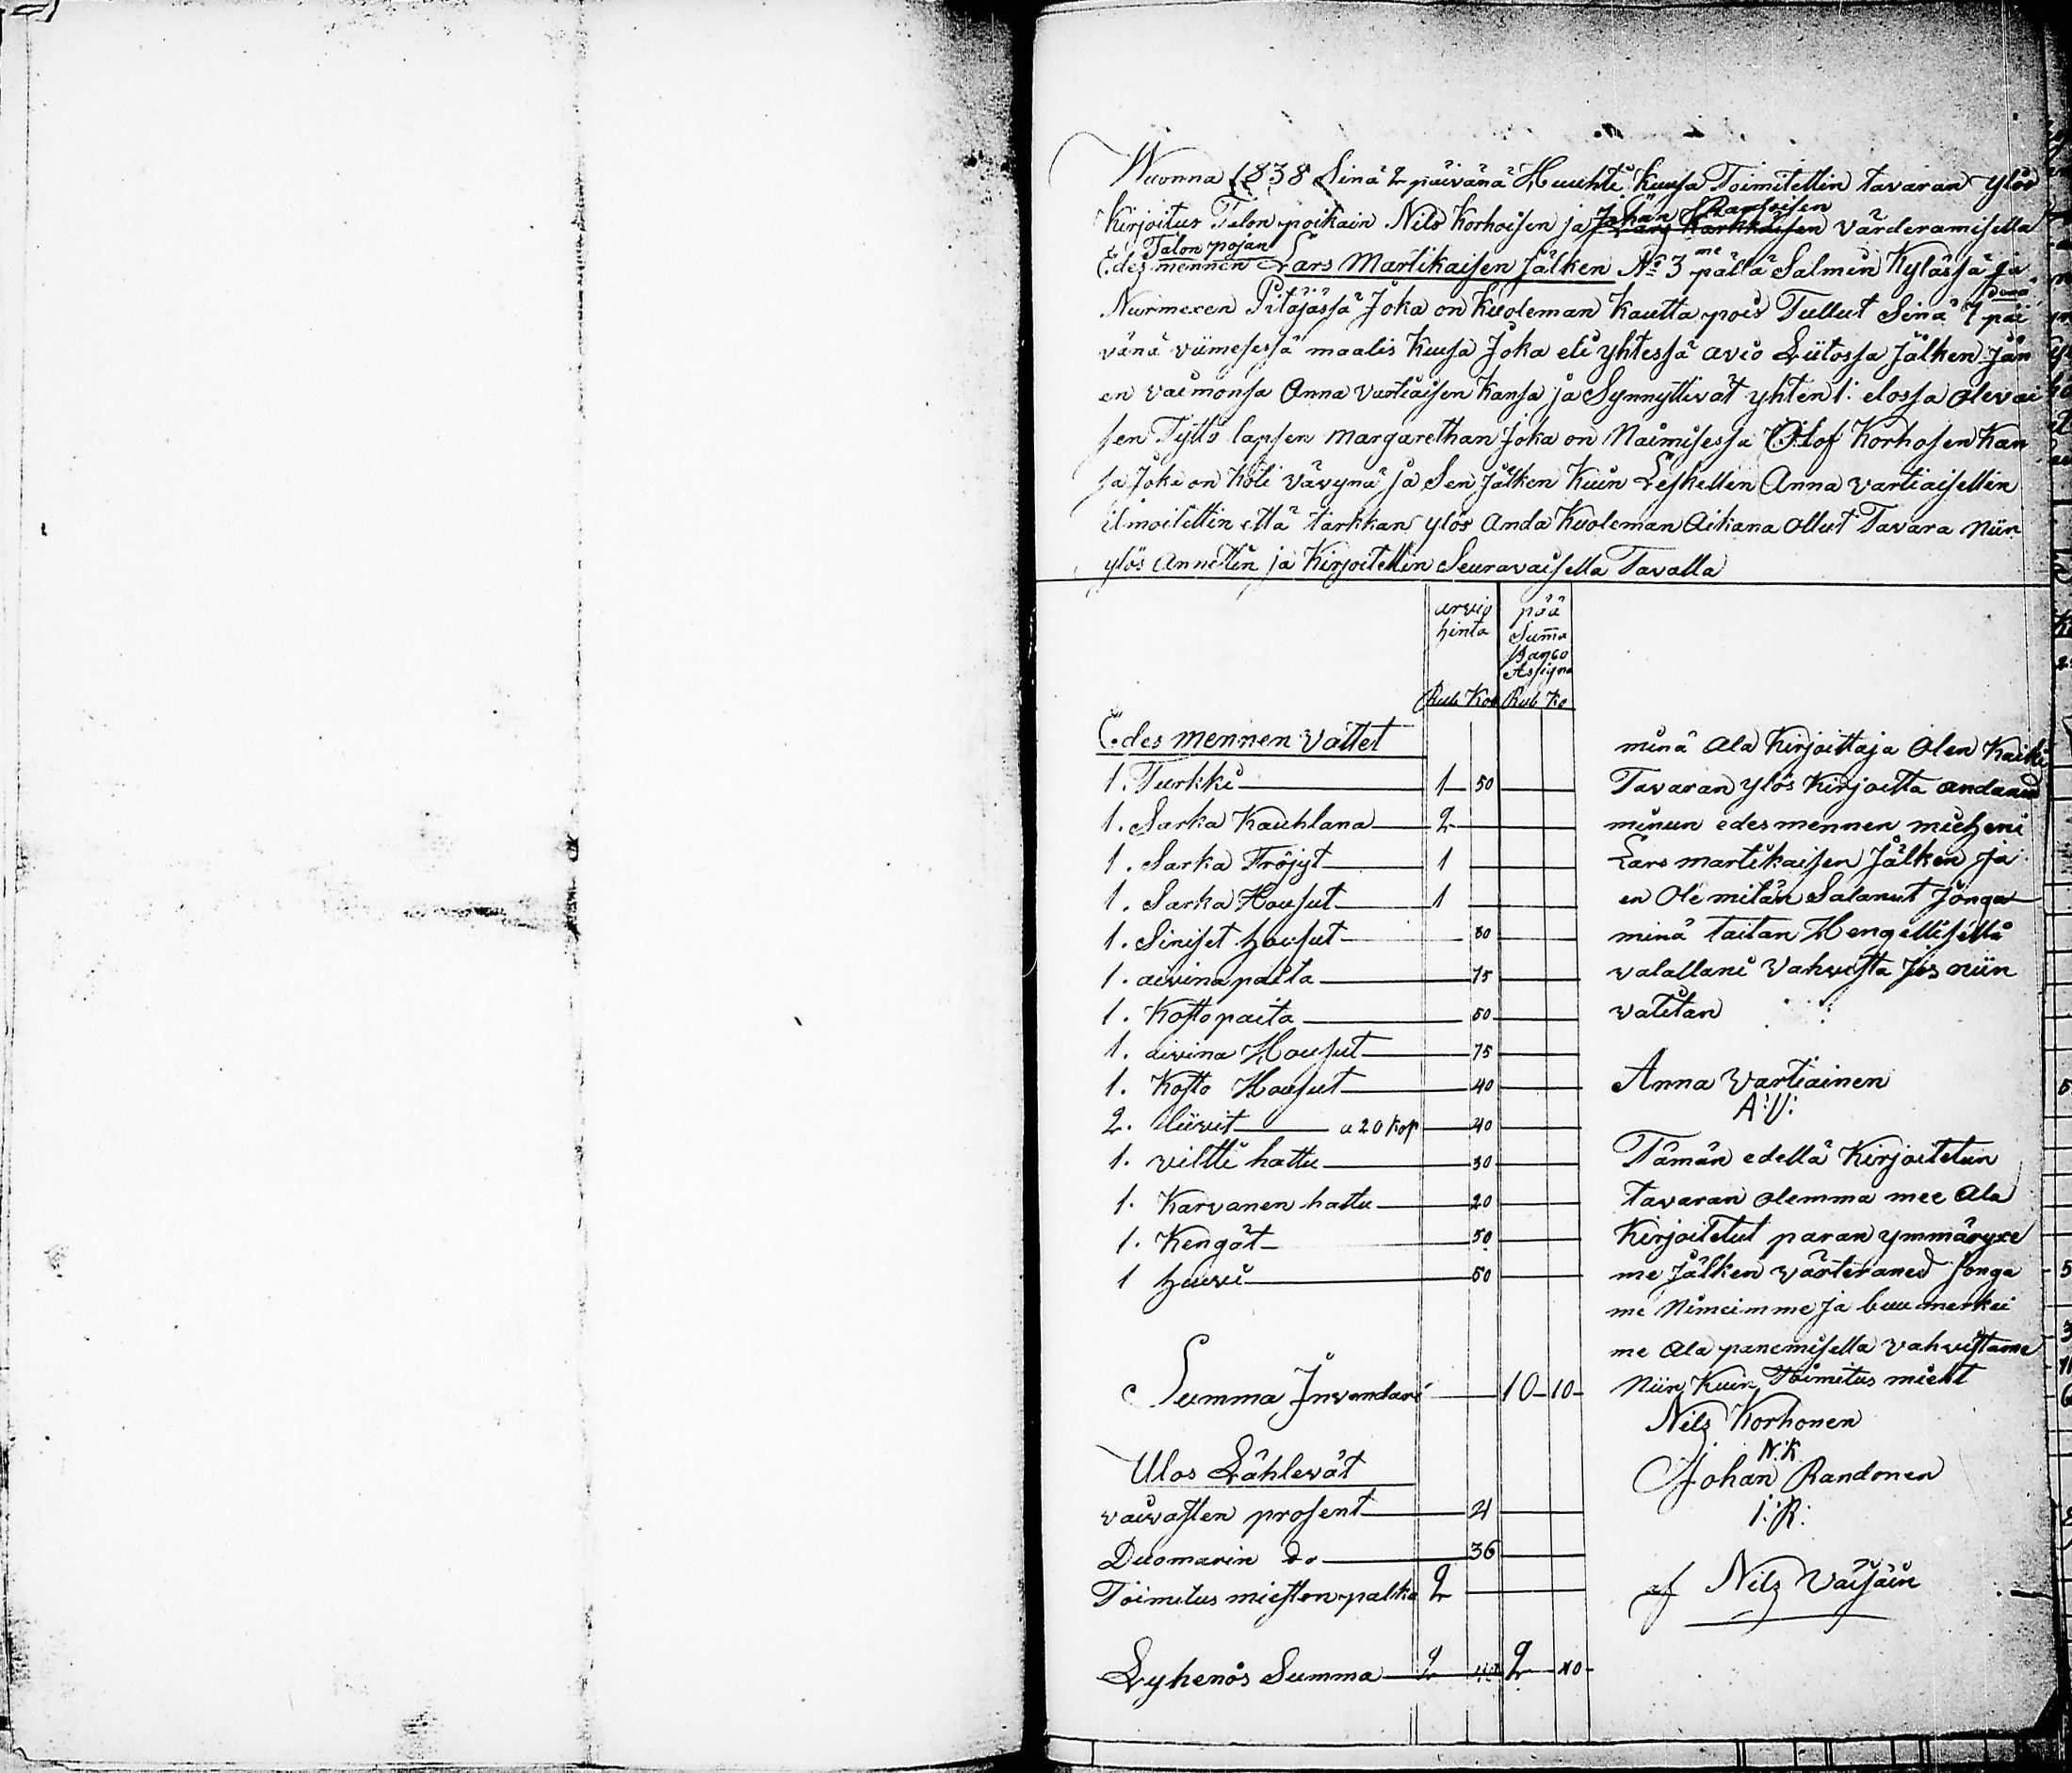 Wuonna 1838 Sinä 2 päivänä Huuhti Kuusa Toimitettin tavaran ylös
Johan Randoisen
Kirjoitus Talon poikain Nils Korhoisen ja Lars Karhkaisen värderamisella
Talon pojan
Edes mennen Lars Martikaisen Jälken No 3 me pällä Salmen Kylässä ja
Nurmexen Pitäjässä Joka on Kuoleman Kautta pois Tullut Sinä 7 päi
vänä viimesessä maalis Kuusa Joka eli yhtessä avio Liitossa Jälken Jän
en vaimonsa Anna Vartiaisen Kansa ja Synnyttivät yhten 1: elossa olevai
sen Tyttö lapsen Margarethan Joka on Naimisessa Olof Korhosen Kan
sa Joka on Koti Vävynä ja Sen Jälken Kuin Leskellen Anna Vartiaisellen
ilmoitettin että tarkkan ylös Anda Kuoleman Aikana ollut Tavara Niin
ylös Annettin ja Kirjoitettin Seuravaisella Tavalla
arvio hinta
pää Summa Banco Assigna
Rub Kop Rub Ko
Edes mennen Vattet
1. Turkki 1 50
1. Sarka Kauhtana 2
1. Sarka Tröjyt 1
1. Sarka Housut 1
1. Siniset housut 80
1. aivina paita 75
1. Rosto paita 50
1. aivina Housut 75
1. Rosto Housut 40
2. liivit a 20 Kop 40
1. viltti hattu 30
1. Karvanen hattu 20
1. Kengät 50
1 huivi 50
Summa Invendari 10 10
Ulos Lähtevät
vaivasten prosent 4
Duomarin do 36
Toimitus miesten palka 2
Lyhenös Summa 2 40 2 40
minä Ala Kirjoittaja Olen Kaiki
Tavaran ylös Kirjoitta andanud
minun edesmennen mieheni
Lars martikaisen Jälken ja
en Ole mitän Salanut Jonga
minä taitan Hengellisellä
valallani Vahvista Jos niin
vatitan
Anna Vartiainen
A:V:
Tämän edellä Kirjoitetun
tavaran olemma mee Ala
Kirjoitetut paran ymmäryxe
me Jälken värteraned Jonga
me Nimeimme ja buumerkei
me Ala panemisella vahvistame
Niin Kuin Toimitus mieht
Nils Korhonen
N:K
Johan Randonen
I:R:
af Nils Väisäin